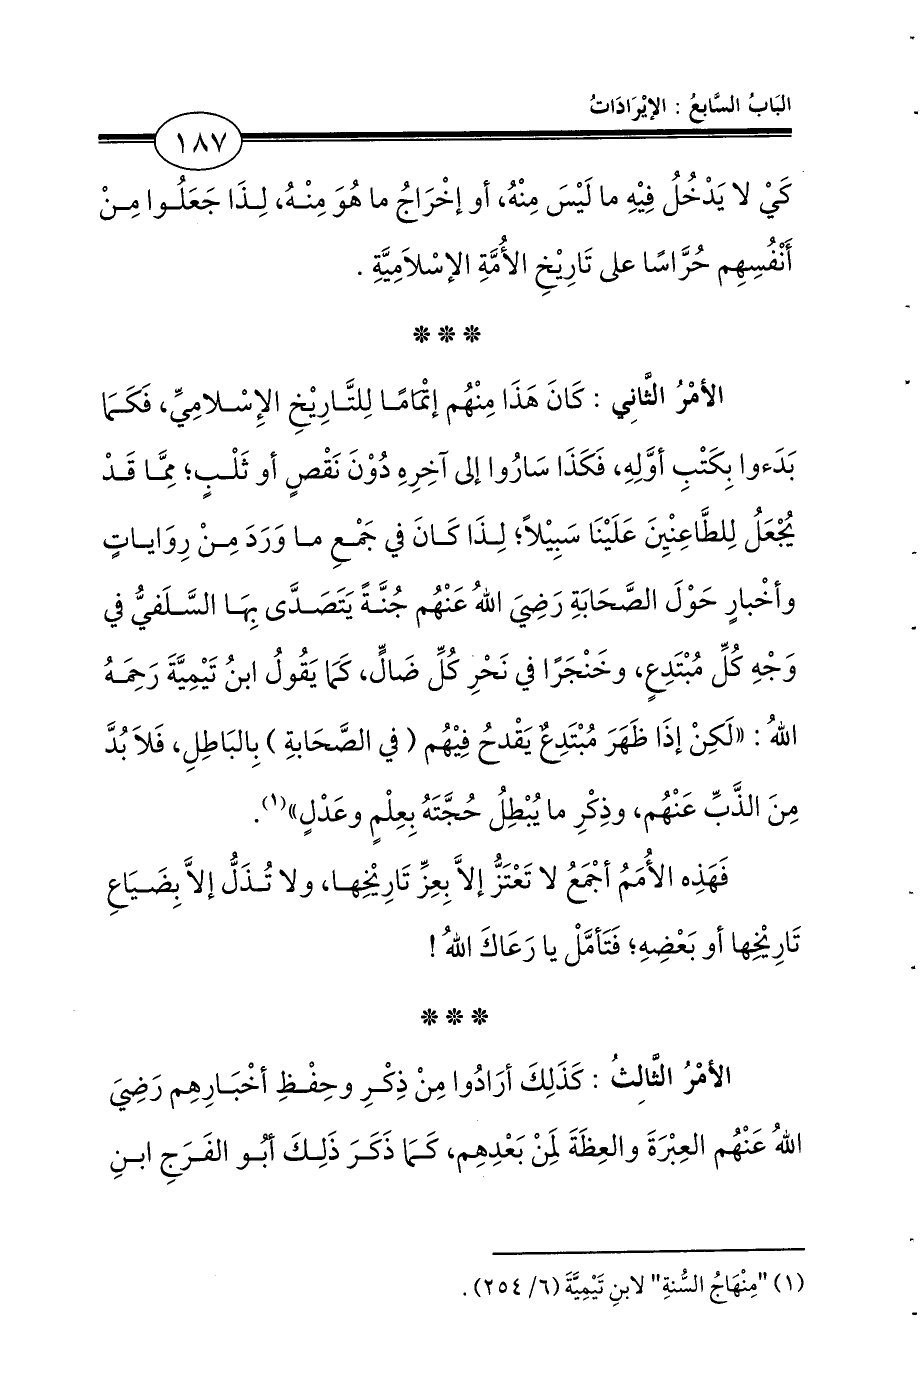 البَابُ السَّابعُ : الإيْرَادَاتُ
١٨٧
كَيْ لا يَدْخُلُ فِيْهِ ما لَيْسَ مِنْهُ، أو إخْرَاجُ ما هُوَ مِنْهُ، لِذَا جَعَلُوا مِنْ
أَنْفُسِهِم حُرَّاسًا على تَارِيْخِ الأُمَّةِ الإسْلاَمِيَّةِ .
❊ ❊ ❊
الأمْرُ الثَّاني : كَانَ هَذَا مِنْهُم إتْمَامًا لِلتَّارِيْخِ الإسْلامِيِّ، فَكَمَا
بَدَءوا بِكَتْبِ أوَّلِهِ، فَكَذَا سَارُوا إلى آخِرِهِ دُوْنَ نَقْصٍ أو ثَلْبٍ؛ مِمَّا قَدْ
يُجْعَلُ لِلطَّاعِنِيْنَ عَلَيْنَا سَبِيْلاً؛ لِذَا كَانَ في جَمْعِ ما وَرَدَ مِنْ رِوَاياتٍ
وأخْبارٍ حَوْلَ الصَّحَابَةِ رَضِيَ اللهُ عَنْهُم جُنَّةً يَتَصَدَّى بِهَا السَّلَفيُّ في
وَجْهِ كُلِّ مُبْتَدِعٍ، وخَنْجَرًا في نَحْرِ كُلِّ ضَالٍّ، كَمَا يَقُولُ ابنُ تَيْمِيَّةَ رَحِمَهُ
اللهُ : «لَكِنْ إذَا ظَهَرَ مُبْتَدِعٌ يَقْدحُ فِيْهُم ( في الصَّحَابَةِ ) بِالبَاطِلِ، فَلاَ بُدَّ
مِنَ الذَّبِّ عَنْهُم، وذِكْرِ ما يُبْطِلُ حُجَّتَهُ بِعِلْمٍ وعَدْلٍ»(١).
فَهَذِه الأُمَمُ أجْمَعُ لا تَعْتَزُّ إلاَّ بِعِزِّ تَارِيْخِها، ولا تُذَلُّ إلاَّ بِضَيَاعِ
تَارِيْخِها أو بَعْضِهِ؛ فَتَأمَّلْ يا رَعَاكَ اللهُ !
❊ ❊ ❊
الأمْرُ الثَّالِثُ : كَذَلِكَ أرَادُوا مِنْ ذِكْرِ وحِفْظِ أخْبَارِهِم رَضِيَ
اللهُ عَنْهُم العِبْرَةَ والعِظَةَ لِمَنْ بَعْدِهِم، كَمَا ذَكَرَ ذَلِكَ أبُو الفَرَجِ ابنِ
(١) "مِنْهَاجُ السُّنةِ" لابنِ تَيْمِيَّةَ (٦/ ٢٥٤) .